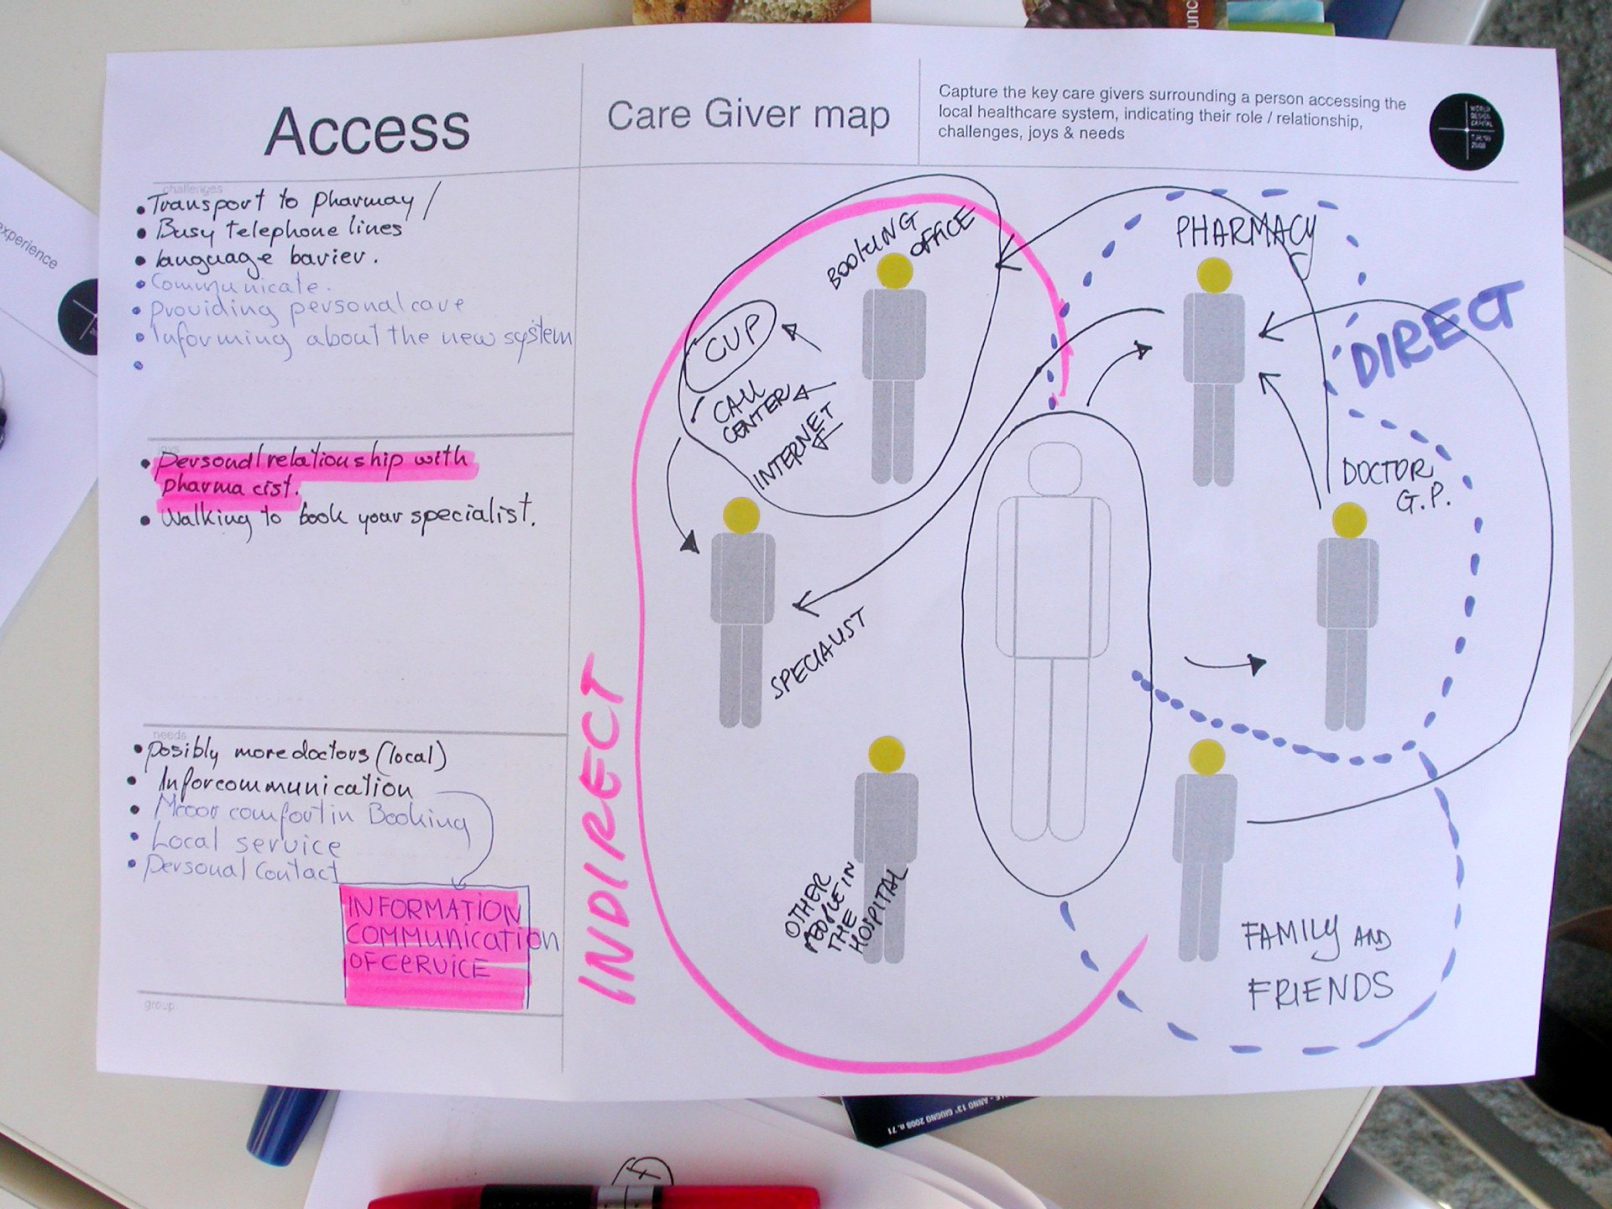 Access
Care Giver map
Capture the key care givers surrounding a person accessing the
local healthcare system, indicating their role / relationship,
challenges, joys & needs
WORLD
DESIGN
CAPITAL
TORINO
2008
challenges
• Transport to pharmay /
• Busy telephone lines
• language bavier.
• Communicate.
• Providing personal cave
• Informing about the new system
•
• Personal relationship with
pharma cist.
• Walking to book your specialist.
needs
• Posibly more doctors (local)
• Inforcommunication
• Mooor comfort in Booking
• Local service
• Personal Contact
INFORMATION
COMMUNICATION
OF CERVICE
group
BOOKING
OFFICE
CUP
CALL
CENTER
INTERNET
SPECIALIST
OTHER
PEOPLE IN
THE
HOSPITAL
INDIRECT
PHARMACY
DIRECT
DOCTOR
G.P.
FAMILY AND
FRIENDS
experience
- ANNO 13° GIUGNO 2008 n. 71